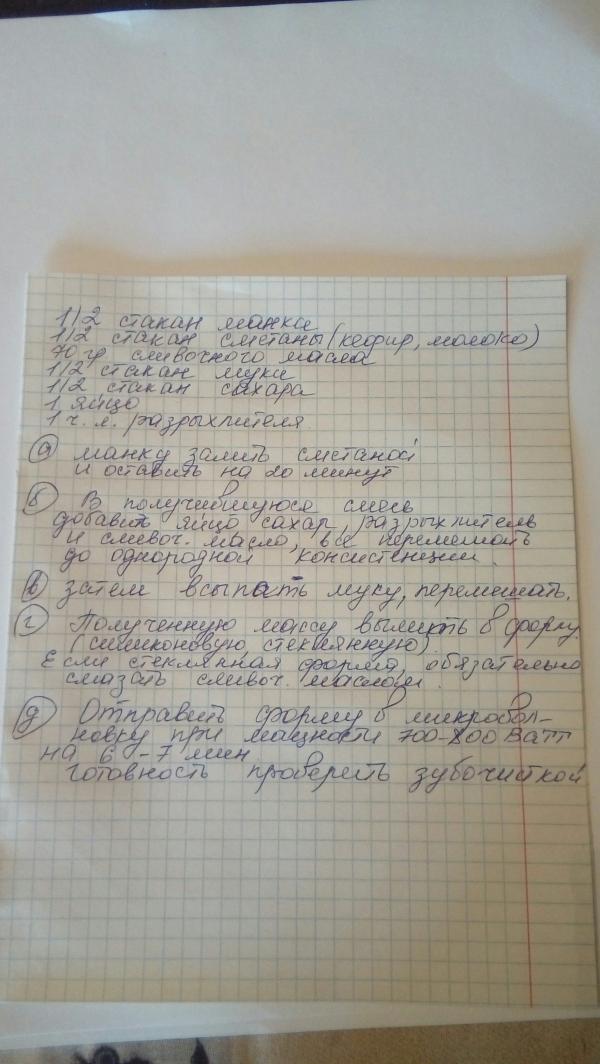 1/2 стакан манки
1/2 стакан сметаны (кефир, молоко)
70 гр сливочного масла
1/2 стакан муки
1/2 стакан сахара
1 яйцо
1 ч. л. разрыхлителя
а) манку залить сметаной
и оставить на 20 минут
б) В получившуюся смесь
добавить яйцо сахар, разрыхлитель
и сливоч. масло, все перемешать
до однородной консистенции.
в) затем всыпать муку, перемешать.
г) Полученную массу вылить в форму
(силиконовую, стеклянную).
Если стеклянная форма, обязательно
смазать сливоч. маслом.
д) Отправить форму в микровол-
новку при мощности 700-800 Ватт
на 6 - 7 мин
готовность проверить зубочисткой